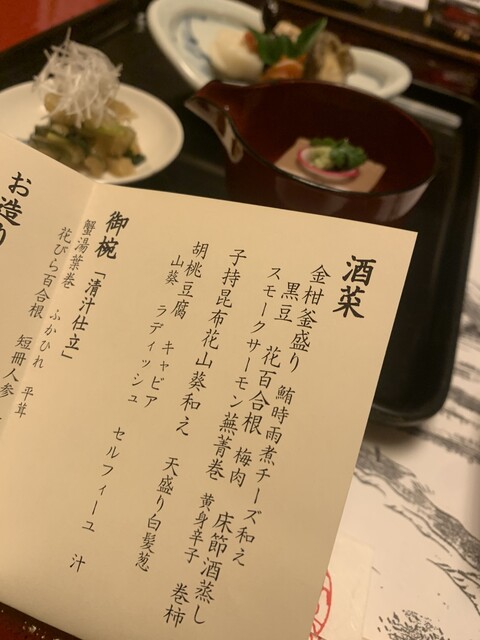 酒菜
金柑釜盛り 鮪時雨煮チーズ和え
黒豆 花百合根 梅肉 床節酒蒸し
スモークサーモン蕪菁巻 黄身辛子 巻柿
子持昆布花山葵和え 天盛り白髪葱
胡桃豆腐 キャビア
山葵 ラディッシュ セルフィーユ 汁
御椀「清汁仕立」
蟹湯葉巻 ふかひれ 平茸
花びら百合根 短冊人参
お造り